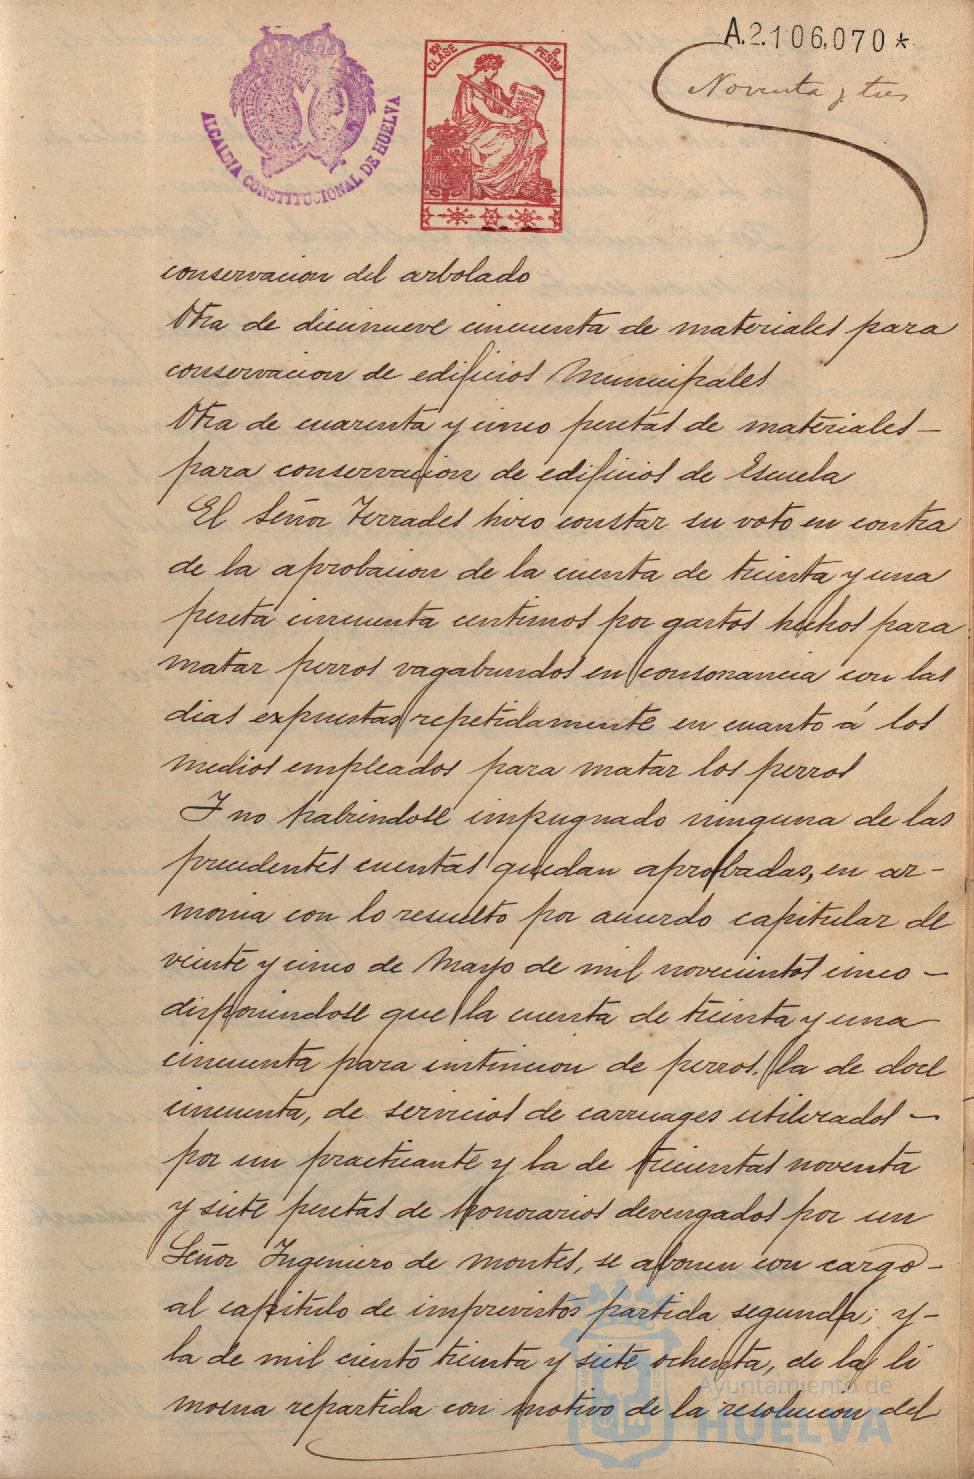 A.2.106,070*
Noventa y tres
ALCALDIA CONSTITUCIONAL DE HUELVA
10ª CLASE
2 PESETAS
conservacion del arbolado
Otra de diecinueve cincuenta de materiales para
conservacion de edificios Municipales
Otra de cuarenta y cinco pesetas de materiales –
para conservacion de edificios de Escuela
El Señor Terrades hizo constar su voto en contra
de la aprobacion de la cuenta de treinta y una
peseta cincuenta centimos por gastos hechos para
matar perros vagabundos en consonancia con las
dias expuestas repetidamente en cuanto á los
medios empleados para matar los perros
Y no habiendose impugnado ninguna de las
precedentes cuentas quedan aprobadas, en ar-
monia con lo resuelto por acuerdo capitular de
veinte y cinco de Mayo de mil novecientos cinco –
disponiendose que la cuenta de treinta y una
cincuenta para extincion de perros, la de doce
cincuenta, de servicios de carruages utilizados –
por un practicante y la de trecientas noventa
y siete pesetas de honorarios devengados por un
Señor Ingeniero de montes, se abonen con cargo –
al capitulo de imprevistos partida segunda; y –
la de mil ciento treinta y siete ochenta, de la li
mosna repartida con motivo de la resolucion del
Ayuntamiento de
HUELVA